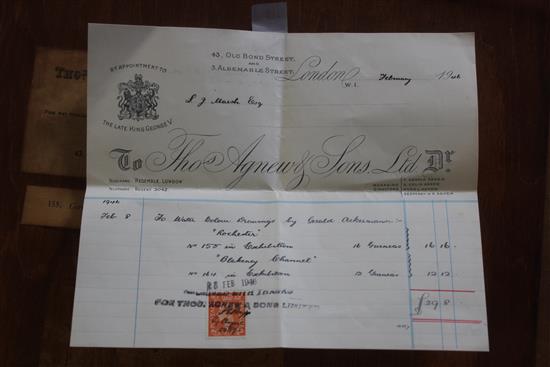 43, OLD BOND STREET,
AND
3, ALBEMARLE STREET,
London
W.1.
February 1946
BY APPOINTMENT TO
THE LATE KING GEORGE V
S J Marsh Esq
To Thos. Agnew & Sons, Ltd. Dr.
TELEGRAMS RESEMBLE, LONDON
TELEPHONE REGENT 3042
1946
Feb 8 To Water Colour Drawings by Gerald Ackermann :-
"Rochester"
No 155 in Exhibition 16 Guineas 16 16 -
"Blakeney Channel"
No 164 in Exhibition 12 Guineas 12 12 -
£29 8 -
28 FEB 1946
RECEIVED WITH THANKS
FOR THOS. AGNEW & SONS LIMITED
THO
155.